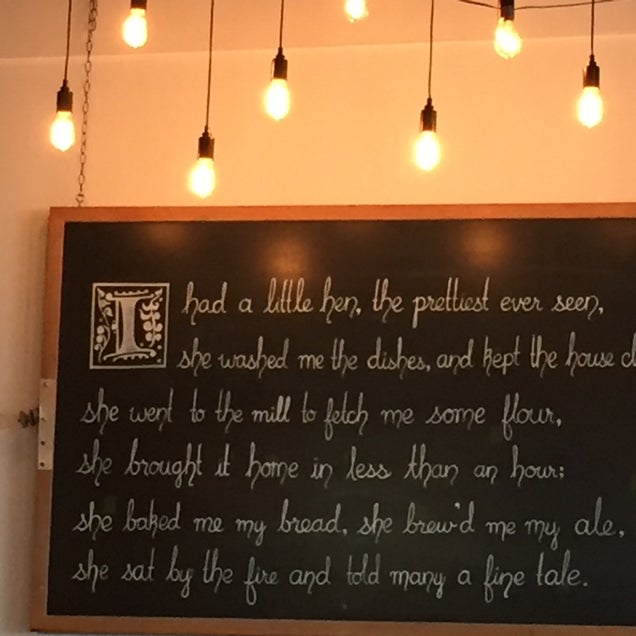 I had a little hen, the prettiest ever seen,
she washed me the dishes, and kept the house
she went to the mill to fetch me some flour,
she brought it home in less than an hour;
she baked me my bread, she brew'd me my ale,
she sat by the fire and told many a fine tale.